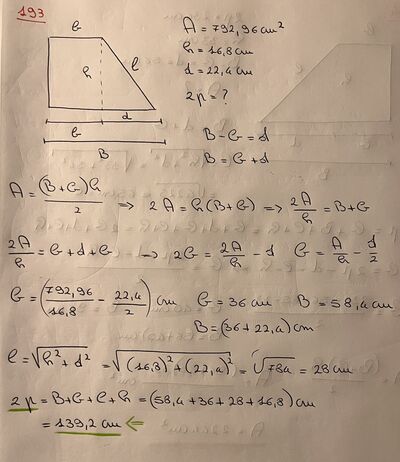 193
b
A = 792,96 cm²
h = 16,8 cm
d = 22,4 cm
2p = ?
h
l
d
b
B
B - b = d
B = b + d
A = (B+b)h / 2 ⟹ 2A = h(B+b) ⟹ 2A/h = B+b
2A/h = b + d + b ⟹ 2b = 2A/h - d b = A/h - d/2
b = (792,96/16,8 - 22,4/2) cm b = 36 cm B = 58,4 cm
B = (36 + 22,4) cm
l = √(h² + d²) = √((16,8)² + (22,4)²) = √784 = 28 cm
2p = B+b+l+h = (58,4 + 36 + 28 + 16,8) cm
= 139,2 cm ⟸